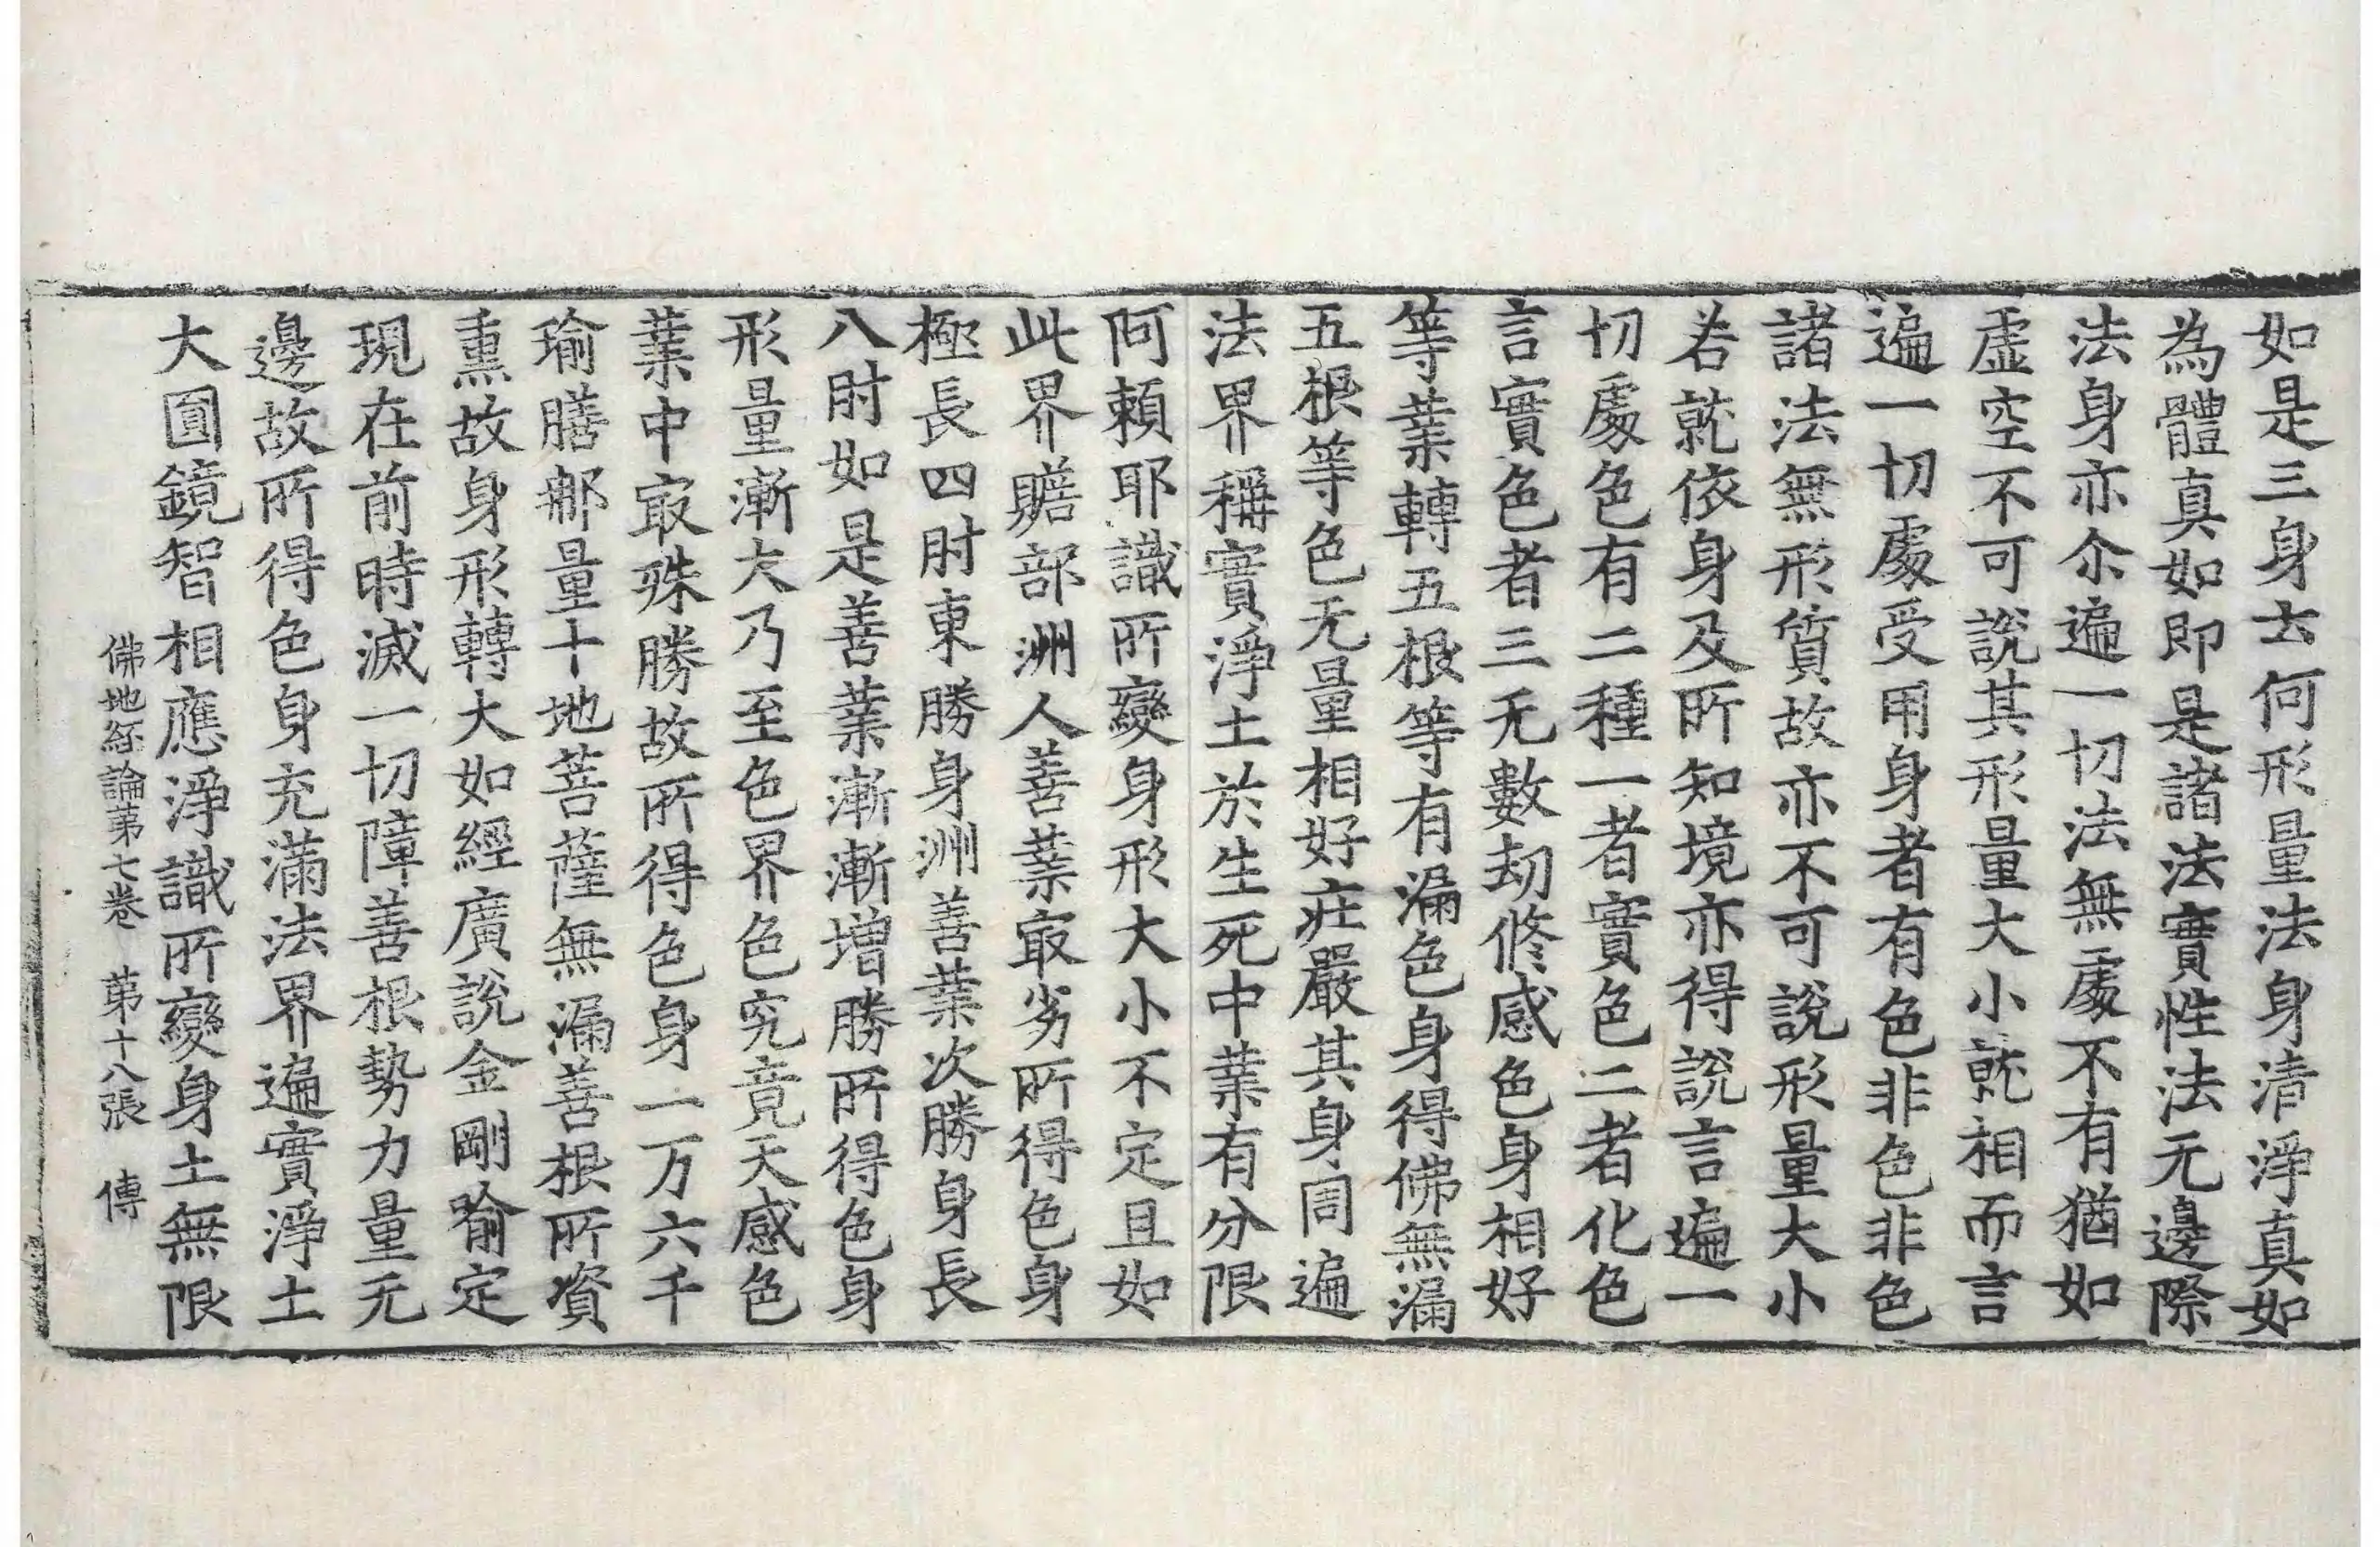 如是三身云何形量法身清淨真如
為體真如即是諸法實性法无邊際
法身亦尒遍一切法無處不有猶如
虛空不可說其形量大小就相而言
遍一切處受用身者有色非色非色
諸法無形質故亦不可說形量大小
若就依身及所知境亦得說言遍一
切處色有二種一者實色二者化色
言實色者三无數劫修感色身相好
等業轉五根等有漏色身得佛無漏
五根等色无量相好莊嚴其身周遍
法界稱實淨土於生死中業有分限
阿賴耶識所變身形大小不定且如
此界贍部洲人善業㝡劣所得色身
極長四肘東勝身洲善業次勝身長
八肘如是善業漸漸增勝所得色身
形量漸大乃至色界色究竟天感色
業中㝡殊勝故所得色身一万六千
瑜膳那量十地菩薩無漏善根所資
熏故身形轉大如經廣說金剛喻定
現在前時滅一切障善根勢力量无
邊故所得色身充滿法界遍實淨土
大圓鏡智相應淨識所變身土無限
佛地經論苐七卷 苐十八張 傳